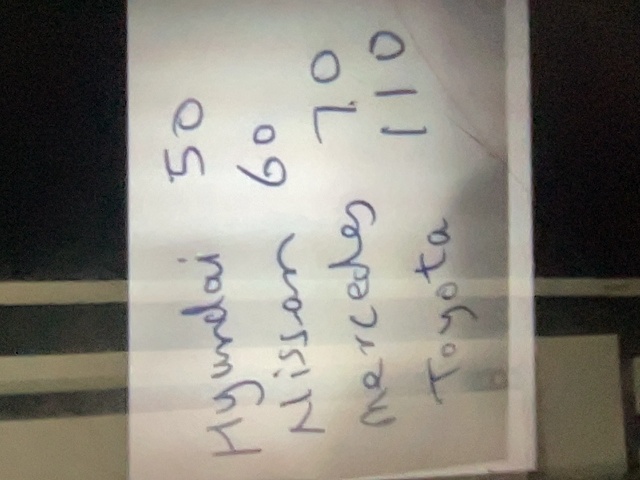 Hyundai 50
Nissan 60
mercedes 70
Toyota 110